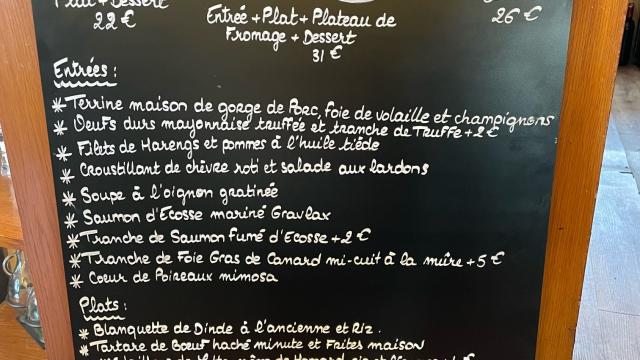 Plat + Dessert
22 €
Entrée + Plat + Plateau de
Fromage + Dessert
31 €
26 €
Entrées :
* Terrine maison de gorge de Porc, foie de volaille et champignons
* Oeufs durs mayonnaise truffée et tranche de Truffe + 2 €
* Filets de Harengs et pommes à l'huile tiède
* Croustillant de chèvre roti et salade aux lardons
* Soupe à l'oignon gratinée
* Saumon d'Ecosse mariné Gravlax
* Tranche de Saumon fumé d'Ecosse + 2 €
* Tranche de Foie Gras de Canard mi-cuit à la mûre + 5 €
* Coeur de Poireaux mimosa
Plats :
* Blanquette de Dinde à l'ancienne et Riz.
* Tartare de Bœuf haché minute et Faites maison